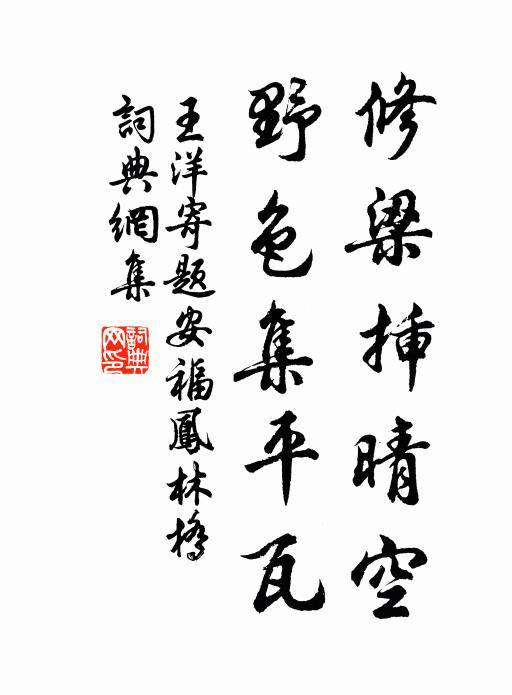 修梁挿晴空
野色集平瓦
王洋寄題安福鳳林橋
詞典網集
詞典网印